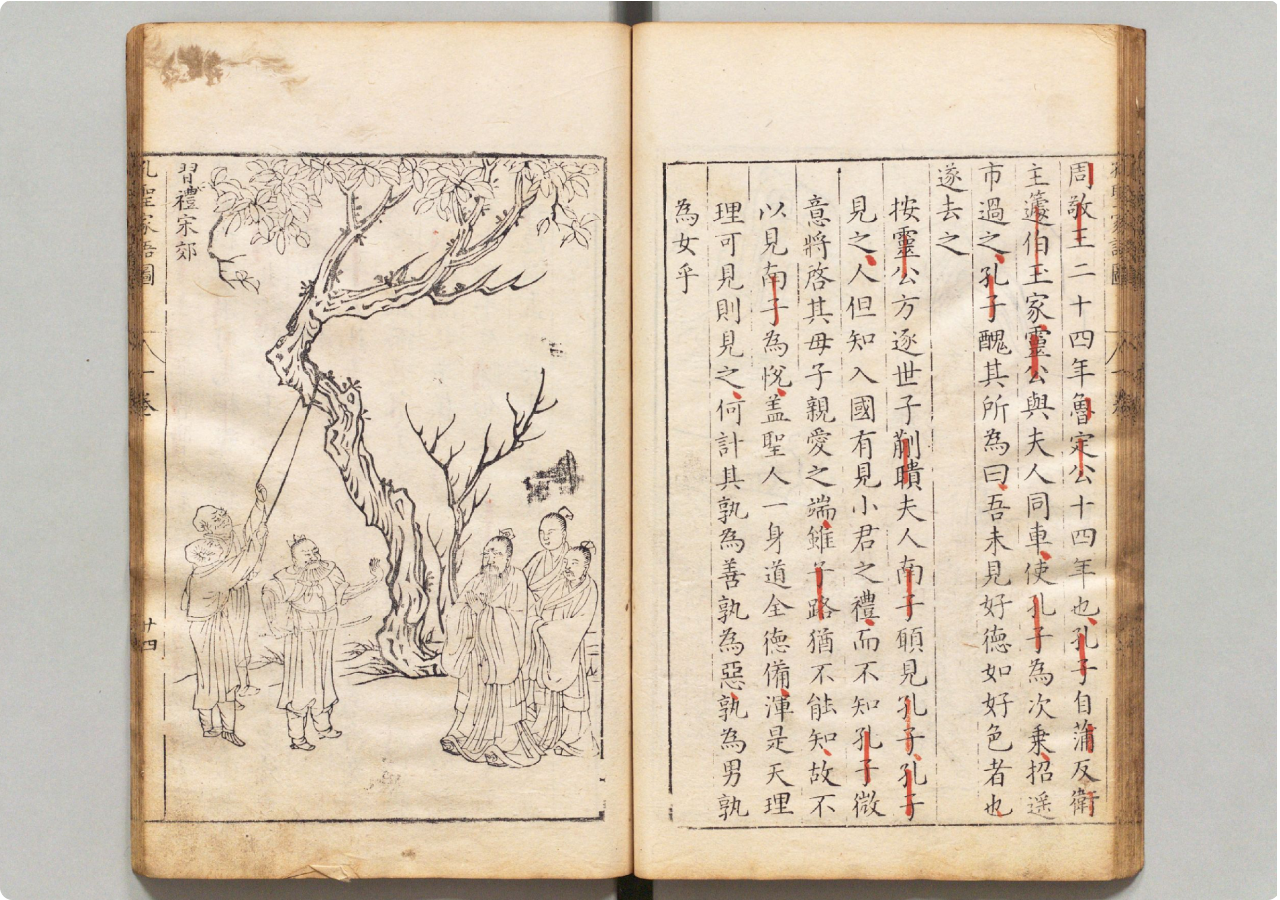 周敬王二十四年魯定公十四年也孔子自蒲反衛
主蘧伯玉家靈公與夫人同車使孔子為次乗招遥
市過之孔子醜其所為曰吾未見好德如好色者也
遂去之
按靈公方逐世子蒯聵夫人南子頋見孔子孔子
見之人但知入國有見小君之禮而不知孔子微
意將啓其母子親愛之端雖子路猶不能知故不
以見南子為悅盖聖人一身道全德備渾是天理
理可見則見之何計其孰為善孰為惡孰為男孰
為女乎
習禮宋郊
孔聖家語圖
八一卷
廿四